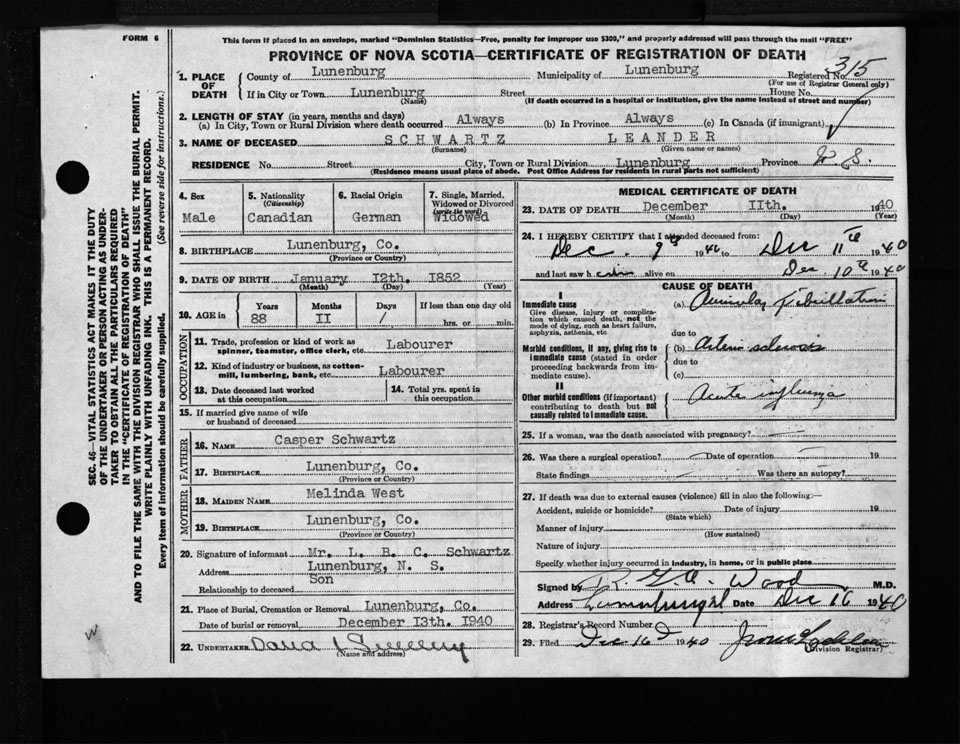 FORM 6
This form if placed in an envelope, marked "Dominion Statistics—Free, penalty for improper use $300," and properly addressed will pass through the mail "FREE"
PROVINCE OF NOVA SCOTIA—CERTIFICATE OF REGISTRATION OF DEATH
315
1. PLACE OF DEATH
County of Lunenburg Municipality of Lunenburg Registered No.
(For use of Registrar General only)
If in City or Town Lunenburg Street House No.
(Name) (If death occurred in a hospital or institution, give the name instead of street and number)
2. LENGTH OF STAY (in years, months and days)
(a) In City, Town or Rural Division where death occurred Always (b) In Province Always (c) In Canada (if immigrant)
3. NAME OF DECEASED SCHWARTZ LEANDER
(Surname) (Given name or names)
RESIDENCE No. Street City, Town or Rural Division Lunenburg Province N. S.
(Residence means usual place of abode. Post Office Address for residents in rural parts not sufficient)
4. Sex Male
5. Nationality (Citizenship) Canadian
6. Racial Origin German
7. Single, Married, Widowed or Divorced (write the word) Widowed
8. BIRTHPLACE Lunenburg, Co.
(Province or Country)
9. DATE OF BIRTH January 12th. 1852
(Month) (Day) (Year)
10. AGE in Years Months Days If less than one day old
88 II 1 hrs. or min.
OCCUPATION
11. Trade, profession or kind of work as spinner, teamster, office clerk, etc. Labourer
12. Kind of industry or business, as cotton-mill, lumbering, bank, etc. Labourer
13. Date deceased last worked at this occupation
14. Total yrs. spent in this occupation
15. If married give name of wife or husband of deceased
FATHER
16. NAME Casper Schwartz
17. BIRTHPLACE Lunenburg, Co.
(Province or Country)
MOTHER
18. MAIDEN NAME Melinda West
19. BIRTHPLACE Lunenburg, Co.
(Province or Country)
20. Signature of informant Mr. L. B. C. Schwartz
Address Lunenburg, N. S.
Relationship to deceased Son
21. Place of Burial, Cremation or Removal Lunenburg, Co.
Date of burial or removal December 13th. 1940
22. UNDERTAKER
(Name and address)
MEDICAL CERTIFICATE OF DEATH
23. DATE OF DEATH December IIth. 1940
(Month) (Day) (Year)
24. I HEREBY CERTIFY that I attended deceased from:
Dec. 9th 1940 to Dec 11th 1940
and last saw him alive on Dec 10th 1940
CAUSE OF DEATH
I
Immediate cause
Give disease, injury or complication which caused death, not the mode of dying, such as heart failure, asphyxia, asthenia, etc.
(a) Auricular Fibrillation
due to
Morbid conditions, if any, giving rise to immediate cause (stated in order proceeding backwards from immediate cause).
(b) Arterio sclerosis
due to
(c)
II
Other morbid conditions (if important) contributing to death but not causally related to immediate cause.
Acute influenza
25. If a woman, was the death associated with pregnancy?
26. Was there a surgical operation? Date of operation 19
State findings Was there an autopsy?
27. If death was due to external causes (violence) fill in also the following:—
Accident, suicide or homicide? Date of injury 19
(State which)
Manner of injury
(How sustained)
Nature of injury
Specify whether injury occurred in industry, in home, or in public place
Signed by R. G. A. Wood M.D.
Address Lunenburg Date Dec 16 1940
28. Registrar's Record Number
29. Filed Dec 16 1940
(Division Registrar)
SEC. 46—VITAL STATISTICS ACT MAKES IT THE DUTY
OF THE UNDERTAKER OR PERSON ACTING AS UNDER-
TAKER TO OBTAIN ALL THE PARTICULARS REQUIRED
IN THE "CERTIFICATE OF REGISTRATION OF DEATH"
AND TO FILE THE SAME WITH THE DIVISION REGISTRAR WHO SHALL ISSUE THE BURIAL PERMIT.
WRITE PLAINLY WITH UNFADING INK. THIS IS A PERMANENT RECORD.
Every item of information should be carefully supplied. (See reverse side for instructions.)
W